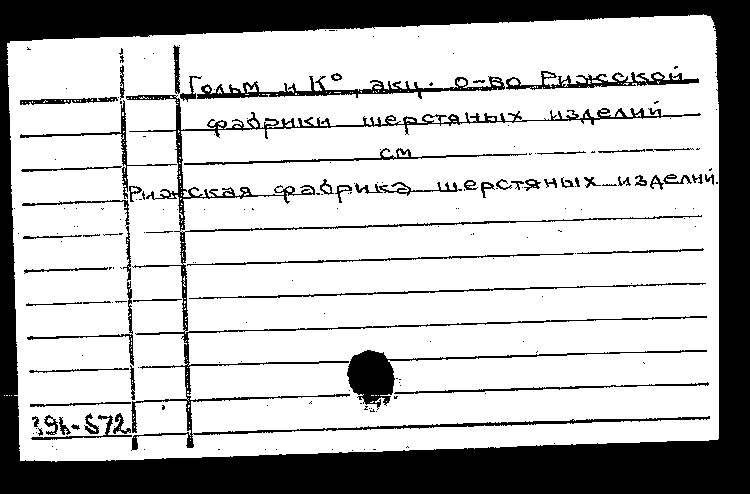 Гольм и К°, акц. о-во Рижской
фабрики шерстяных изделий
см
Рижская фабрика шерстяных изделий.
39ь-572